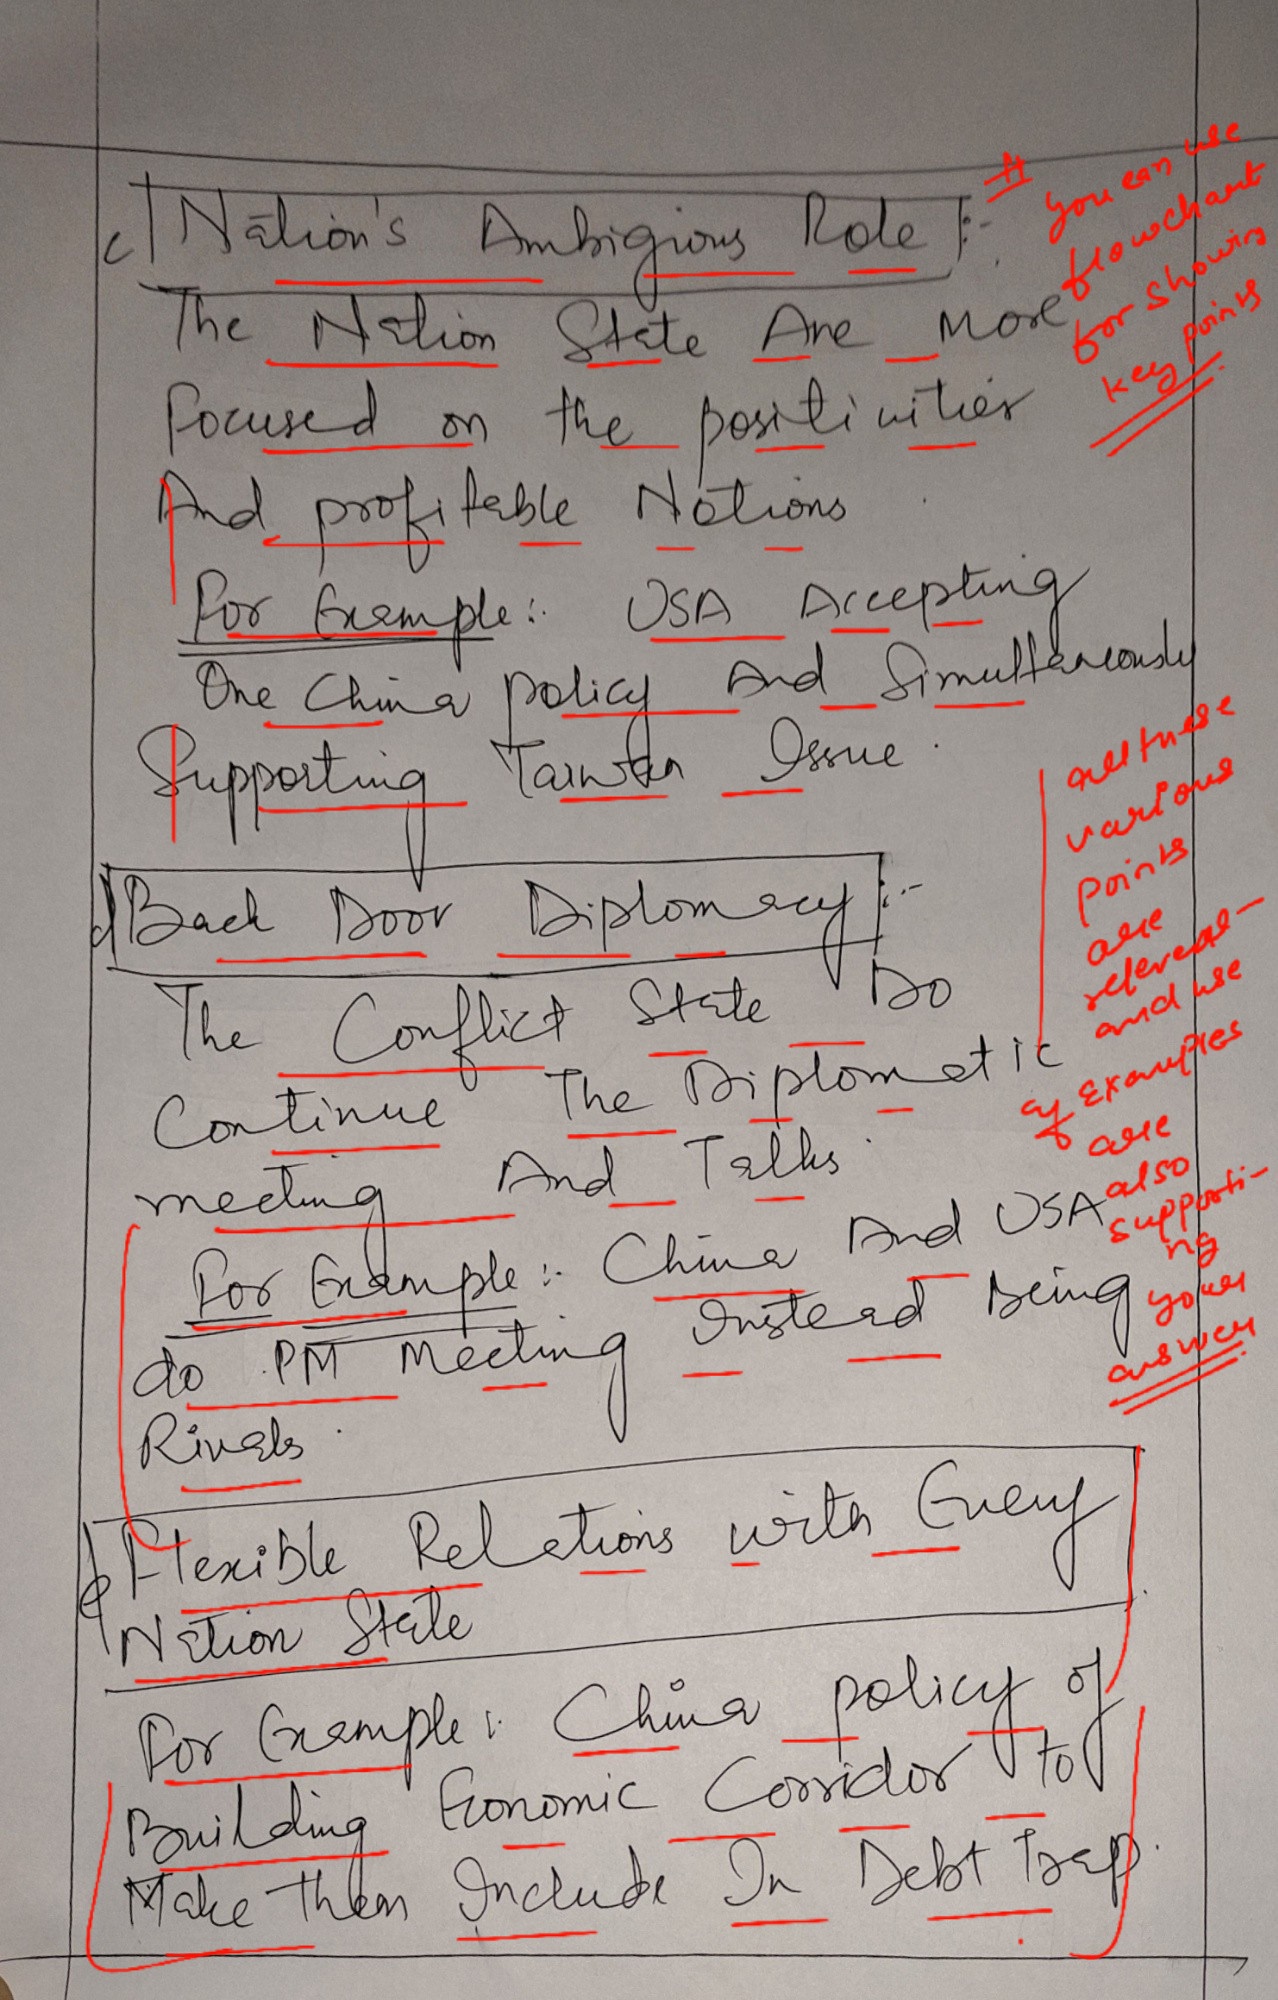 c) Nation's Ambigious Role :-
The Nation State Are More
Focused on the positivities
And profitable Nations
For Example :- USA Accepting
One China policy And Simultaneously
Supporting Taiwan Issue.
d) Back Door Diplomacy :-
The Conflict State Do
Continue The Diplomatic
meeting And Talks.
For Example :- China And USA
do PM Meeting Instead Being
Rivals.
e) Flexible Relations with Every
Nation State
For Example :- China policy of
Building Economic Corridor to
Make them Include In Debt Trap.
# you can use
flowchart
for showing
key points
all these
various
points
are
relevant
and use
of examples
are
also
supporti-
ng
your
answer